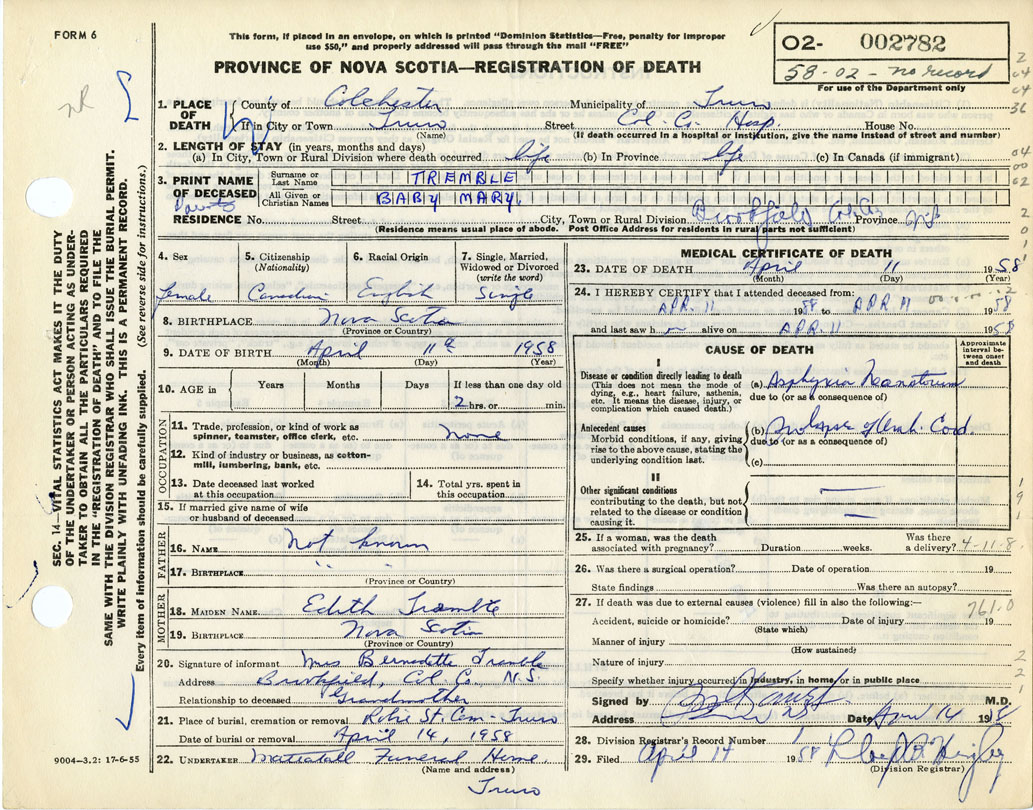 FORM 6
This form, if placed in an envelope, on which is printed "Dominion Statistics—Free, penalty for improper
use $50," and properly addressed will pass through the mail "FREE"
PROVINCE OF NOVA SCOTIA—REGISTRATION OF DEATH
02- 002782
58-02 - no record
For use of the Department only
NR
SEC. 14—VITAL STATISTICS ACT MAKES IT THE DUTY
OF THE UNDERTAKER OR PERSON ACTING AS UNDER-
TAKER TO OBTAIN ALL THE PARTICULARS REQUIRED
IN THE "REGISTRATION OF DEATH" AND TO FILE THE
SAME WITH THE DIVISION REGISTRAR WHO SHALL ISSUE THE BURIAL PERMIT.
WRITE PLAINLY WITH UNFADING INK. THIS IS A PERMANENT RECORD.
Every item of information should be carefully supplied. (See reverse side for instructions.)
1. PLACE OF DEATH
County of Colchester Municipality of Truro
If in City or Town Truro Street Col. Co. Hosp. House No.
(Name) (If death occurred in a hospital or institution, give the name instead of street and number)
2. LENGTH OF STAY (in years, months and days)
(a) In City, Town or Rural Division where death occurred life (b) In Province life (c) In Canada (if immigrant)
3. PRINT NAME OF DECEASED
Surname or Last Name TREMBLE
All Given or Christian Names BABY MARY.
RESIDENCE No. Street City, Town or Rural Division Brookfield Col. Co. Province
(Residence means usual place of abode. Post Office Address for residents in rural parts not sufficient)
4. Sex
female
5. Citizenship (Nationality)
Canadian
6. Racial Origin
English
7. Single, Married, Widowed or Divorced (write the word)
Single
8. BIRTHPLACE Nova Scotia
(Province or Country)
9. DATE OF BIRTH April 11th 1958
(Month) (Day) (Year)
10. AGE in Years Months Days If less than one day old
2 hrs. or min.
OCCUPATION
11. Trade, profession, or kind of work as spinner, teamster, office clerk, etc. none
12. Kind of industry or business, as cotton-mill, lumbering, bank, etc.
13. Date deceased last worked at this occupation
14. Total yrs. spent in this occupation
15. If married give name of wife or husband of deceased
FATHER
16. NAME Not known
17. BIRTHPLACE " "
(Province or Country)
MOTHER
18. MAIDEN NAME Edith Tremble
19. BIRTHPLACE Nova Scotia
(Province or Country)
20. Signature of informant Mrs Bernadette Tremble
Address Brookfield, Col. Co. N.S.
Relationship to deceased Grandmother
21. Place of burial, cremation or removal Robie St. Cem - Truro
Date of burial or removal April 14, 1958
22. UNDERTAKER Mattatall Funeral Home,
(Name and address)
Truro
9004-3.2: 17-6-55
MEDICAL CERTIFICATE OF DEATH
23. DATE OF DEATH April 11 1958
(Month) (Day) (Year)
24. I HEREBY CERTIFY that I attended deceased from:
APR. 11 1958 to APR 11 1958
and last saw h alive on APR. 11 1958
CAUSE OF DEATH
Approximate interval between onset and death
I
Disease or condition directly leading to death
(This does not mean the mode of dying, e.g., heart failure, asthenia, etc. It means the disease, injury, or complication which caused death.)
(a) Asphyxia Neonatorum
due to (or as a consequence of)
Antecedent causes
Morbid conditions, if any, giving rise to the above cause, stating the underlying condition last.
(b) Prolapse of Umb. Cord.
due to (or as a consequence of)
(c)
II
Other significant conditions
contributing to the death, but not related to the disease or condition causing it.
25. If a woman, was the death associated with pregnancy? Duration weeks. Was there a delivery? 4-11-8
26. Was there a surgical operation? Date of operation 19
State findings Was there an autopsy?
27. If death was due to external causes (violence) fill in also the following:— 761.0
Accident, suicide or homicide? Date of injury 19
(State which)
Manner of injury
(How sustained)
Nature of injury
Specify whether injury occurred in industry, in home, or in public place
Signed by M.D.
Address Truro NS Date April 14 1958
28. Division Registrar's Record Number
29. Filed April 14 1958
(Division Registrar)